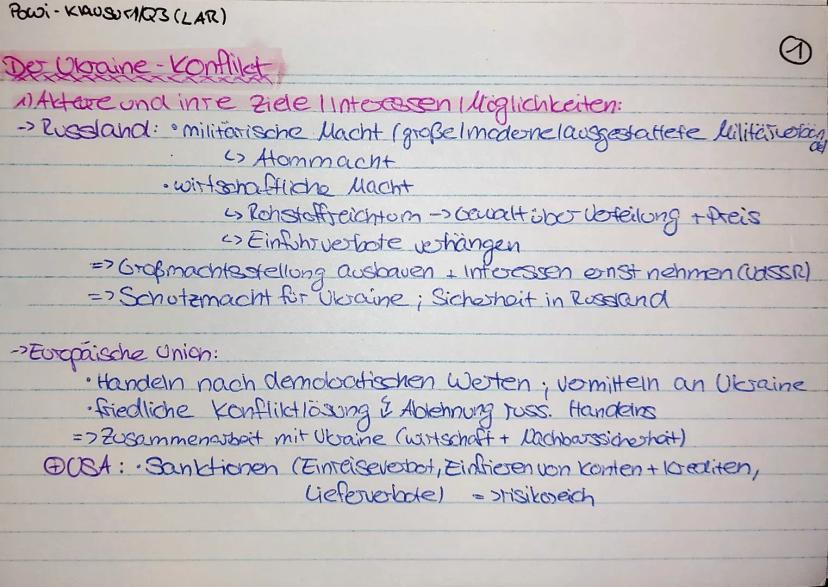 PoWi-Klausur1/Q3 (LAR)
1
Der Ukraine-Konflikt
1) Akteure und ihre Ziele | Interessen | Möglichkeiten:
-> Russland: • militärische Macht (große/moderne/ausgestattete Militärverbände)
↳ Atommacht
• wirtschaftliche Macht
↳ Rohstoffreichtum -> Gewalt über Verteilung + Preis
↳ Einfuhrverbote verhängen
=> Großmachtsstellung ausbauen + Interessen ernst nehmen (UdSSR)
=> Schutzmacht für Ukraine; Sicherheit in Russland
-> Europäische Union:
• Handeln nach demokratischen Werten; vermitteln an Ukraine
• friedliche Konfliktlösung & Ablehnung russ. Handelns
=> Zusammenarbeit mit Ukraine (Wirtschaft + Nachbarssicherheit)
⊕ USA: • Sanktionen (Einreiseverbot, Einfrieren von Konten + Krediten,
Lieferverbote) => risikoreich